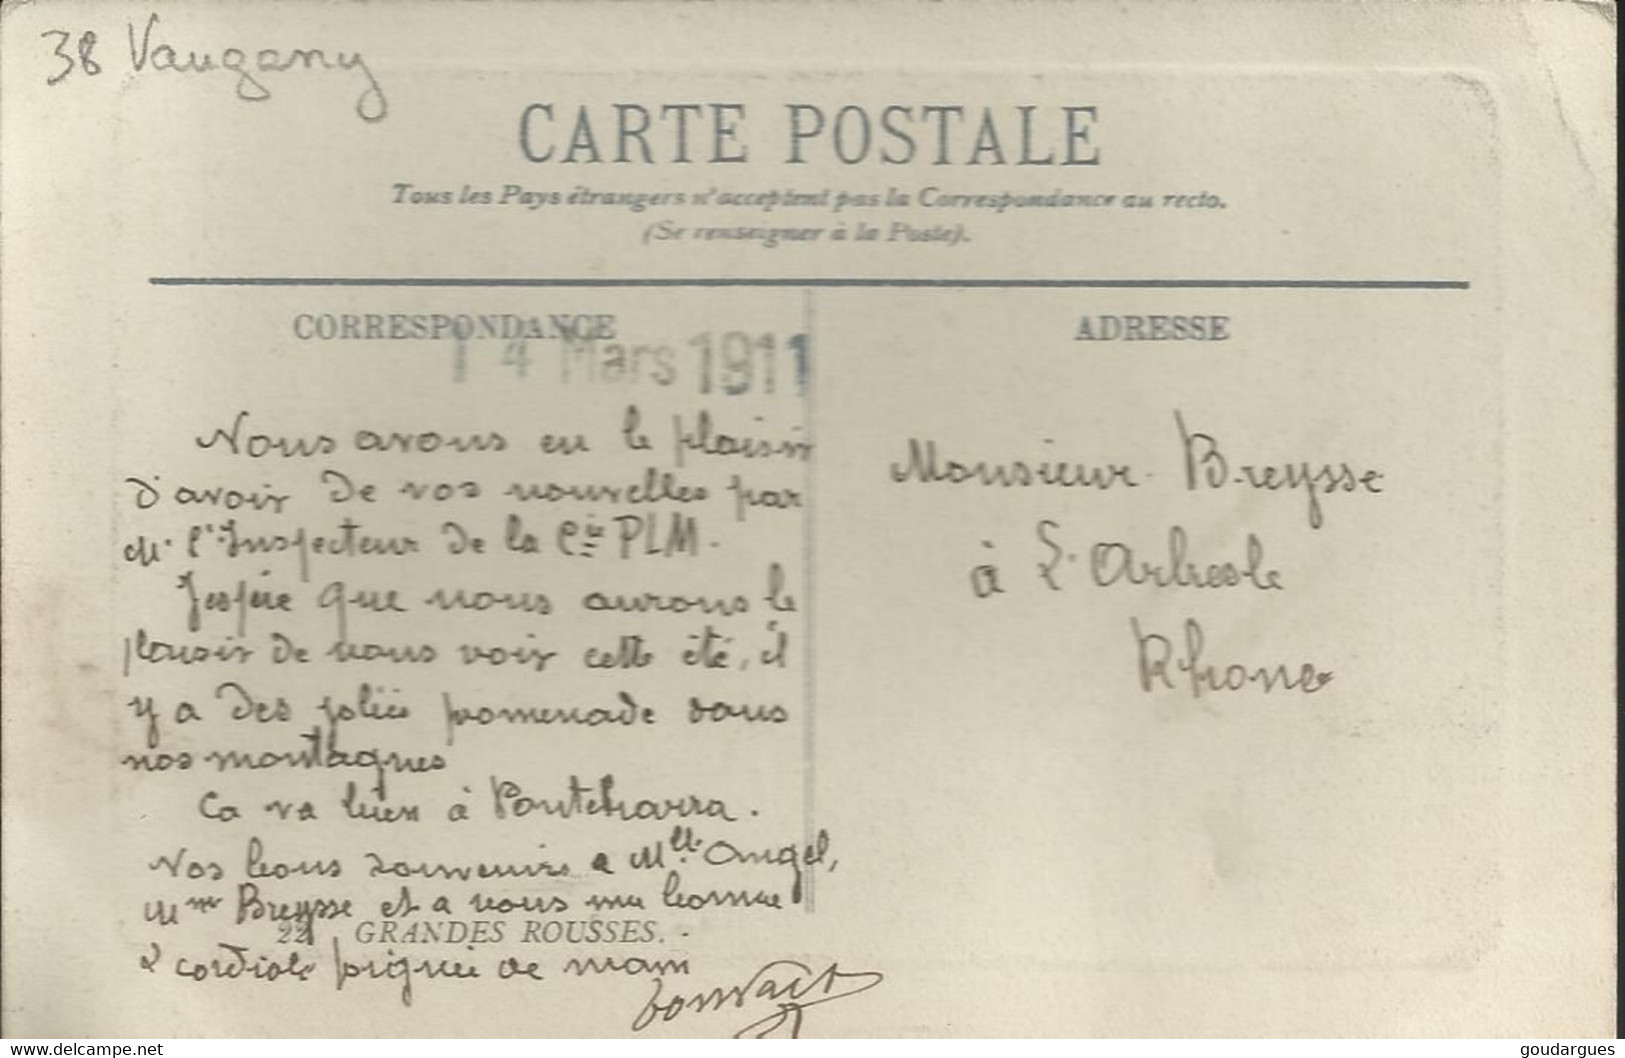 38 Vaugany
CARTE POSTALE
Tous les Pays étrangers n'acceptent pas la Correspondance au recto.
(Se renseigner à la Poste).
CORRESPONDANCE
14 Mars 1911
Nous avons eu le plaisir
d'avoir de vos nouvelles par
M. l'Inspecteur de la Cie PLM.
J'espère que nous aurons le
plaisir de vous voir cette été, il
y a des jolies promenade dans
nos montagnes
Ca va bien à Pontcharra.
Nos bons souvenirs a Mlle Angel,
Mme Breysse et a vous ma bonne
& cordiale poignée de main
22 GRANDES ROUSSES. -
ADRESSE
Monsieur Breysse
à L'Arbresle
Rhone
delcampe.net
goudargues